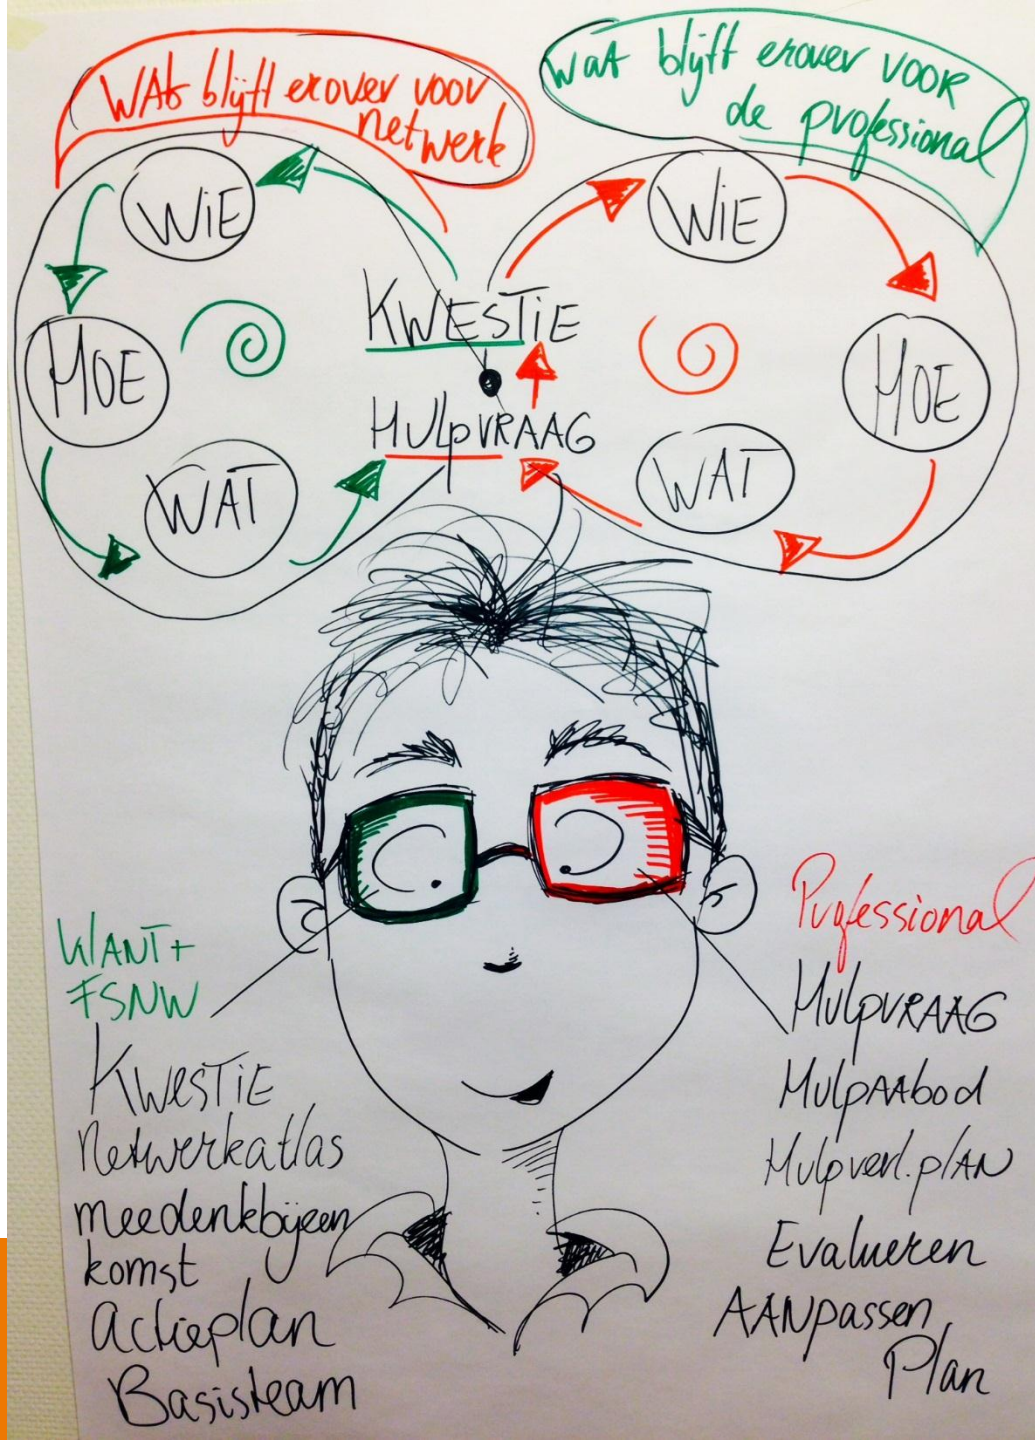 WAt blijft erover voor
netwerk
WAt blijft erover VOOR
de professional
WiE
HOE
WAT
KWESTiE
HULpVRAAG
WiE
HOE
WAT
KLANT+
FSNW
KWESTiE
Netwerkatlas
meedenkbijeen
komst
Actieplan
Basisteam
Professional
HulpVRAAG
HulpAAbod
Hulpverl.plAN
Evalueren
AANpassen
Plan